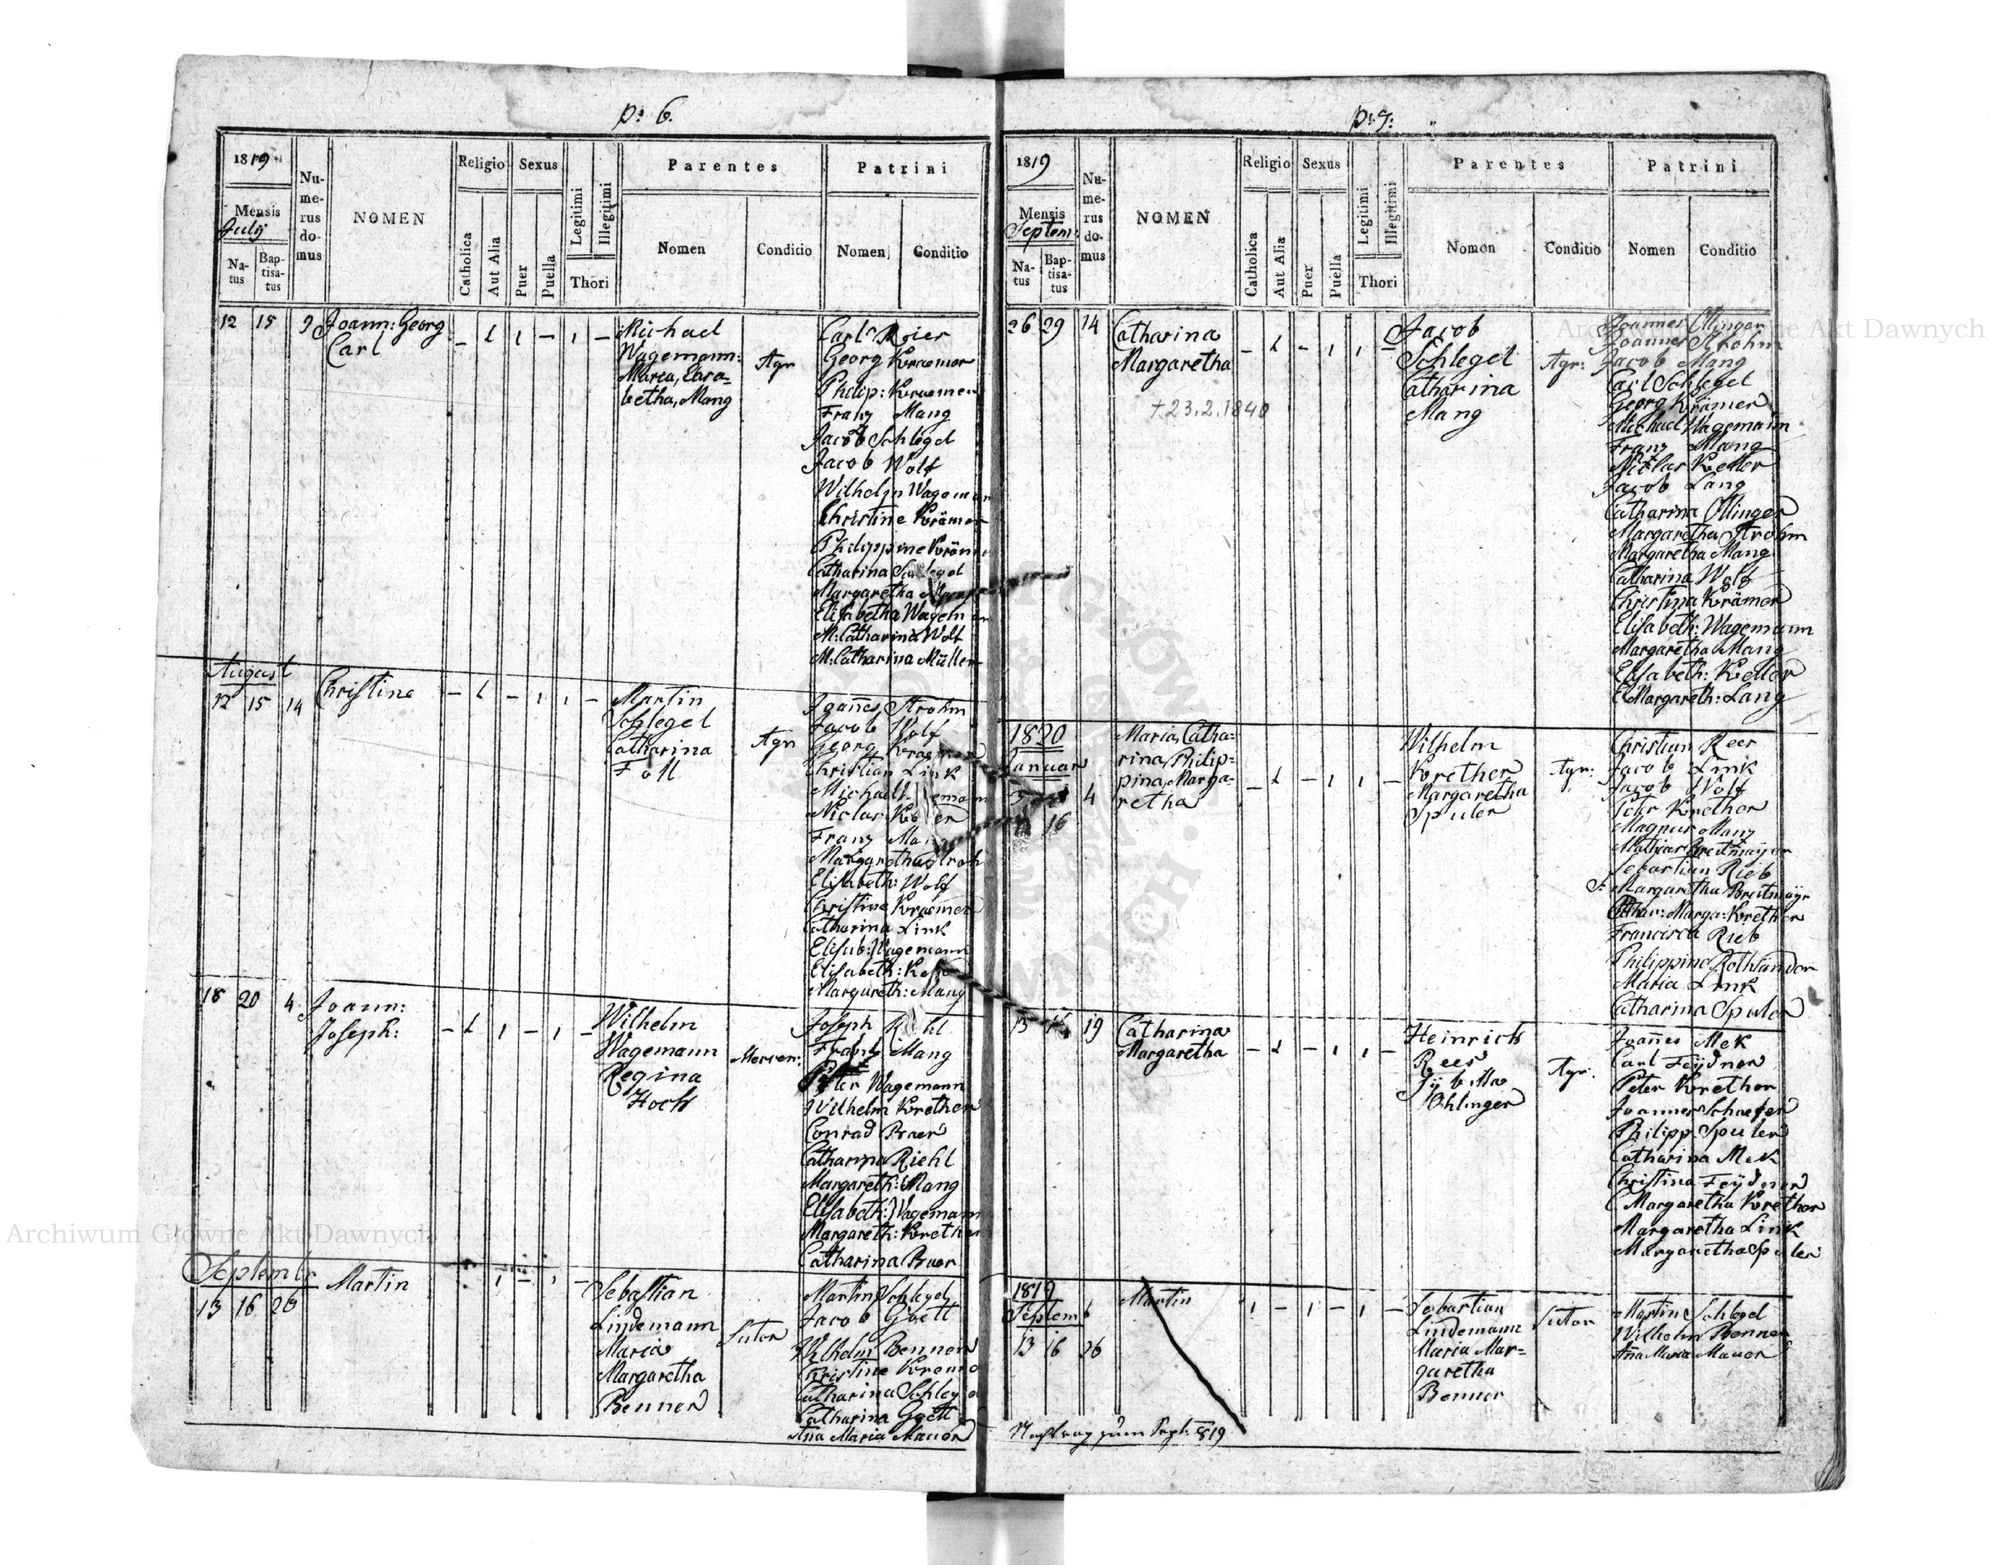 p: 6.
1819
Nu-
me-
rus
do-
mus
NOMEN
Religio
Sexus
Legitimi
Illegitimi
Thori
Parentes
Patrini
Mensis
July
Na-
tus
Bap-
tisa-
tus
Catholica
Aut Alia
Puer
Puella
Nomen
Conditio
Nomen
Conditio
12 15 9 Joann: Georg
Carl
Michael
Wagemann:
Maria, Elisa-
betha, Mang
Agr
Georg Kraemer
Philip: Kraemer
Franz Mang
Jacob Schlegel
Jacob Wolf
Wilhelm Wagemann
Christine Krämer
Philippine Krämer
Catharina Schlegel
Margaretha
Elisabetha Wagemann
M: Catharina Wolf
M: Catharina Müller
August
12 15 14 Christine
Martin
Schlegel
Catharina
Foll
Agr
Joanes Strohm
Jacob Wolf
Georg Kraemer
Christian Link
Michael
Niclas
Franz Mang
Margaretha Stroh
Elisabeth: Wolf
Christine Kraemer
Catharina Link
Elisab: Wagemann
Elisabeth:
Margareth: Mang
18 20 4 Joann:
Joseph:
Wilhelm
Wagemann
Regina
Hoch
Joseph
Franz Mang
Peter Wagemann
Wilhelm Krether
Conrad
Catharina Riehl
Margareth: Mang
Elisabeth: Wagemann
Margareth: Krether
Catharina
Septembr
13 16 26 Martin
Sebastian
Lindemann
Maria
Margaretha
Benner
Sutor
Martin Schlegel
Jacob Goett
Wilhelm Benner
Christine Kraemer
Catharina Schlegel
Catharina Goett
Ana Maria Mauer
p: 7:
1819
Nu-
me-
rus
do-
mus
NOMEN
Religio
Sexus
Legitimi
Illegitimi
Thori
Parentes
Patrini
Mensis
Septem
Na-
tus
Bap-
tisa-
tus
Catholica
Aut Alia
Puer
Puella
Nomen
Conditio
Nomen
Conditio
26 29 14 Catharina
Margaretha
+ 23.2.1840
Jacob
Schlegel
Catharina
Mang
Agr:
Joannes Ollinger
Joannes Strohm
Jacob Mang
Carl Schlegel
Georg Krämer
Michael Wagemann
Franz Mang
Niclas Keller
Jacob Lang
Catharina Ollinger
Margaretha Strohm
Margaretha Mang
Catharina Wolf
Christina Krämer
Elisabeth: Wagemann
Margaretha Mang
Elisabeth: Keller
Margareth: Lang
1820
Januar
16 4
Maria, Catha-
rina, Philip-
pina, Marga-
retha
Wilhelm
Krether
Margaretha
Spuler
Agr:
Christian Rees
Jacob Link
Jacob Wolf
Petr Krether
Magnus Mang
Mathias Breitmayer
Sebastian Rieb
Margaretha Breitmayr
Cathar: Marga: Krether
Francisca Rieb
Philippine
Maria Link
Catharina Spuler
19 Catharina
Margaretha
Heinrich
Rees
Ohlinger
Agr:
Joanes Mek
Carl Feydner
Peter Krether
Joannes Schaefer
Philipp Spuler
Catharina Mek
Christina Feydner
Margaretha Krether
Margaretha Link
Margaretha Spuler
1819
Septemb
13 16 26 Martin
Sebastian
Lindemann
Maria Mar-
garetha
Benner
Sutor
Martin Schlegel
Wilhelm Benner
Ana Maria Mauer
Nachtrag zum Sept. 819
Archiwum Główne Akt Dawnych
Archiwum Główne Akt Dawnych